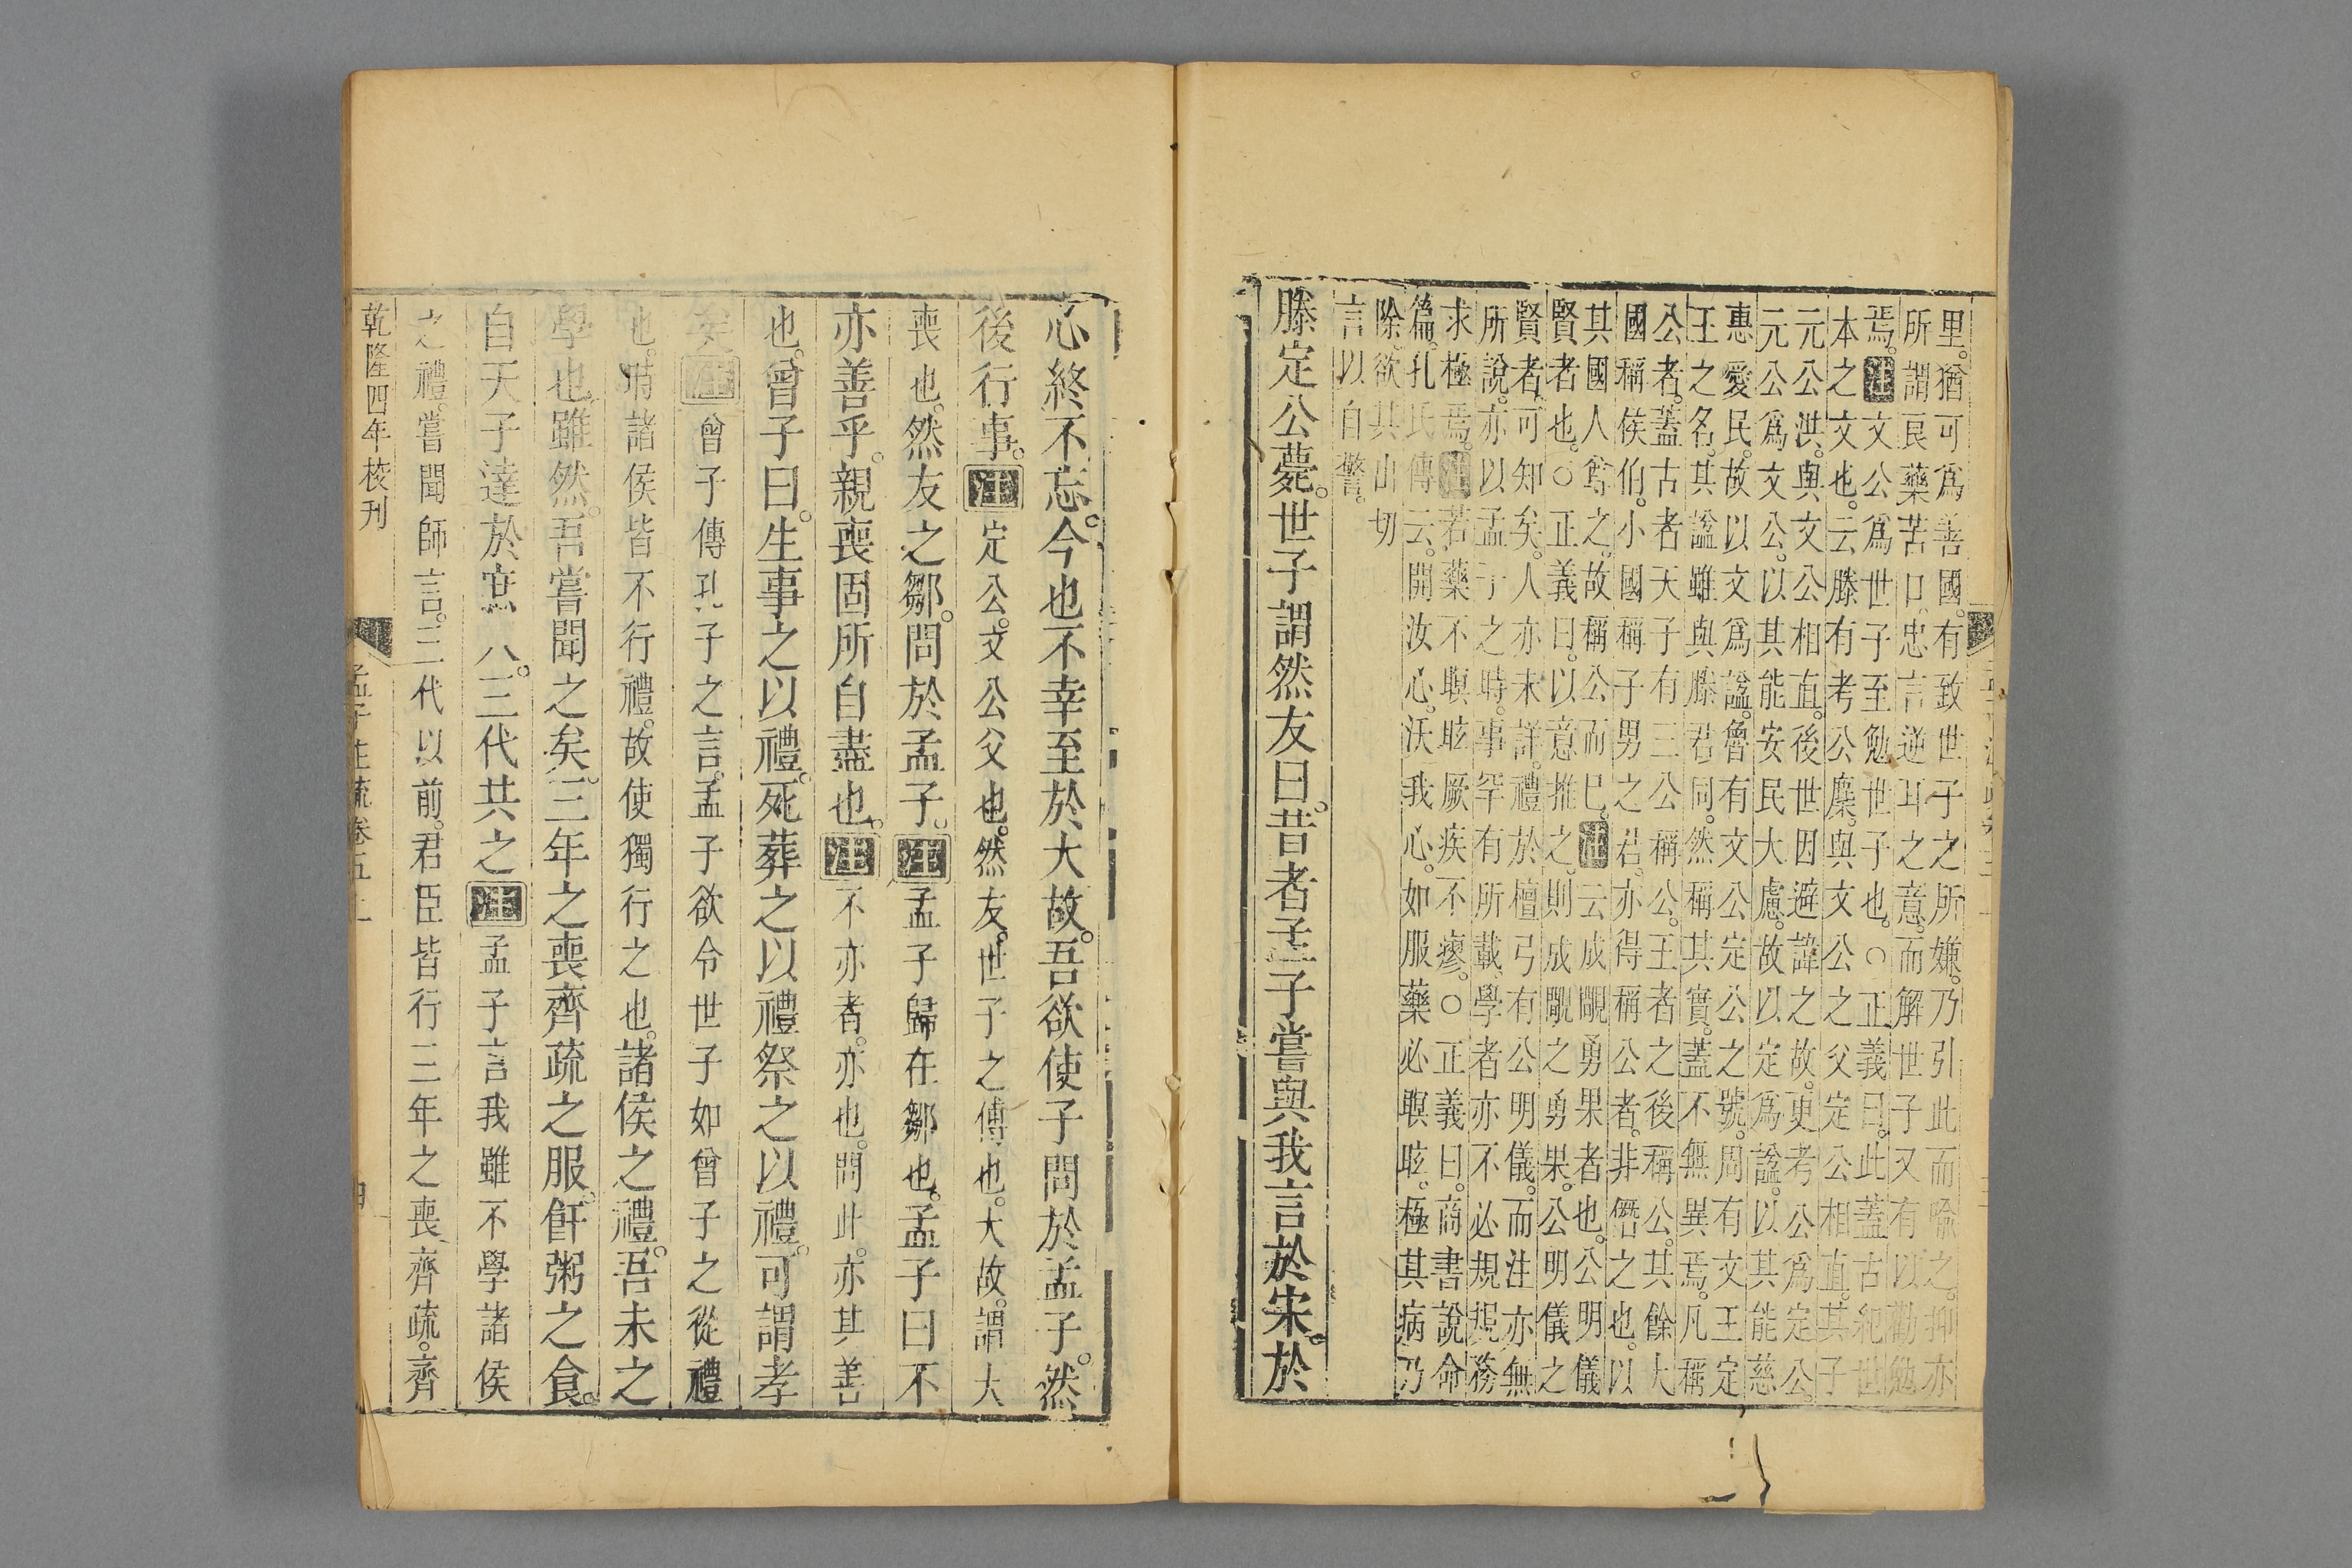 里。猶可爲善國。有致世子之所嫌。乃引此而喻之。抑亦
所謂良藥苦口。忠言逆耳之意。而解世子又有以勸勉
焉。注文公爲世子至勉世子也。○正義曰。此蓋古紀世
本之文也。云滕有考公麋。與文公之父定公相直。其子
元公洪。與文公相直。後世因避諱之故。更考公爲定公。
元公爲文公。以其能安民大慮。故以定爲諡。以其能慈
惠愛民。故以文爲諡。魯有文公定公之號。周有文王定
王之名。其諡雖與滕君同。然稱其實。蓋不無異焉。凡稱
公者。蓋古者天子有三公稱公。王者之後稱公。其餘大
國稱侯伯。小國稱子男之君。亦得稱公者。非僭之也。以
其國人尊之。故稱公而巳。注云成覸勇果者也。公明儀
賢者也。○正義曰。以意推之。則成覸之勇果。公明儀之
賢者。可知矣。人亦未詳。禮於檀弓有公明儀。而注亦無
所說。亦以孟子之時。事罕有所載。學者亦不必規規務
求極焉。注若藥不瞑眩厥疾不瘳。○正義曰。商書說命
篇。孔氏傳云。開汝心。沃我心。如服藥必瞑眩。極其病乃
除。欲其出切
言以自警。
滕定公薨。世子謂然友曰。昔者孟子嘗與我言於宋。於
心終不忘。今也不幸至於大故。吾欲使子問於孟子。然
後行事。注定公。文公父也。然友。世子之傅也。大故。謂大
喪也。然友之鄒。問於孟子。注孟子歸在鄒也。孟子曰不
亦善乎。親喪固所自盡也。注不亦者。亦也。問此。亦其善
也。曾子曰。生事之以禮。死葬之以禮祭之以禮。可謂孝
矣。注曾子傳孔子之言。孟子欲令世子如曾子之從禮
也。時諸侯皆不行禮。故使獨行之也。諸侯之禮。吾未之
學也。雖然。吾嘗聞之矣。三年之喪齊疏之服。飦粥之食。
自天子達於庶人。三代共之。注孟子言我雖不學諸侯
之禮。嘗聞師言。三代以前。君臣皆行三年之喪。齊疏。齊
乾隆四年校刊
孟子注疏卷五上
四